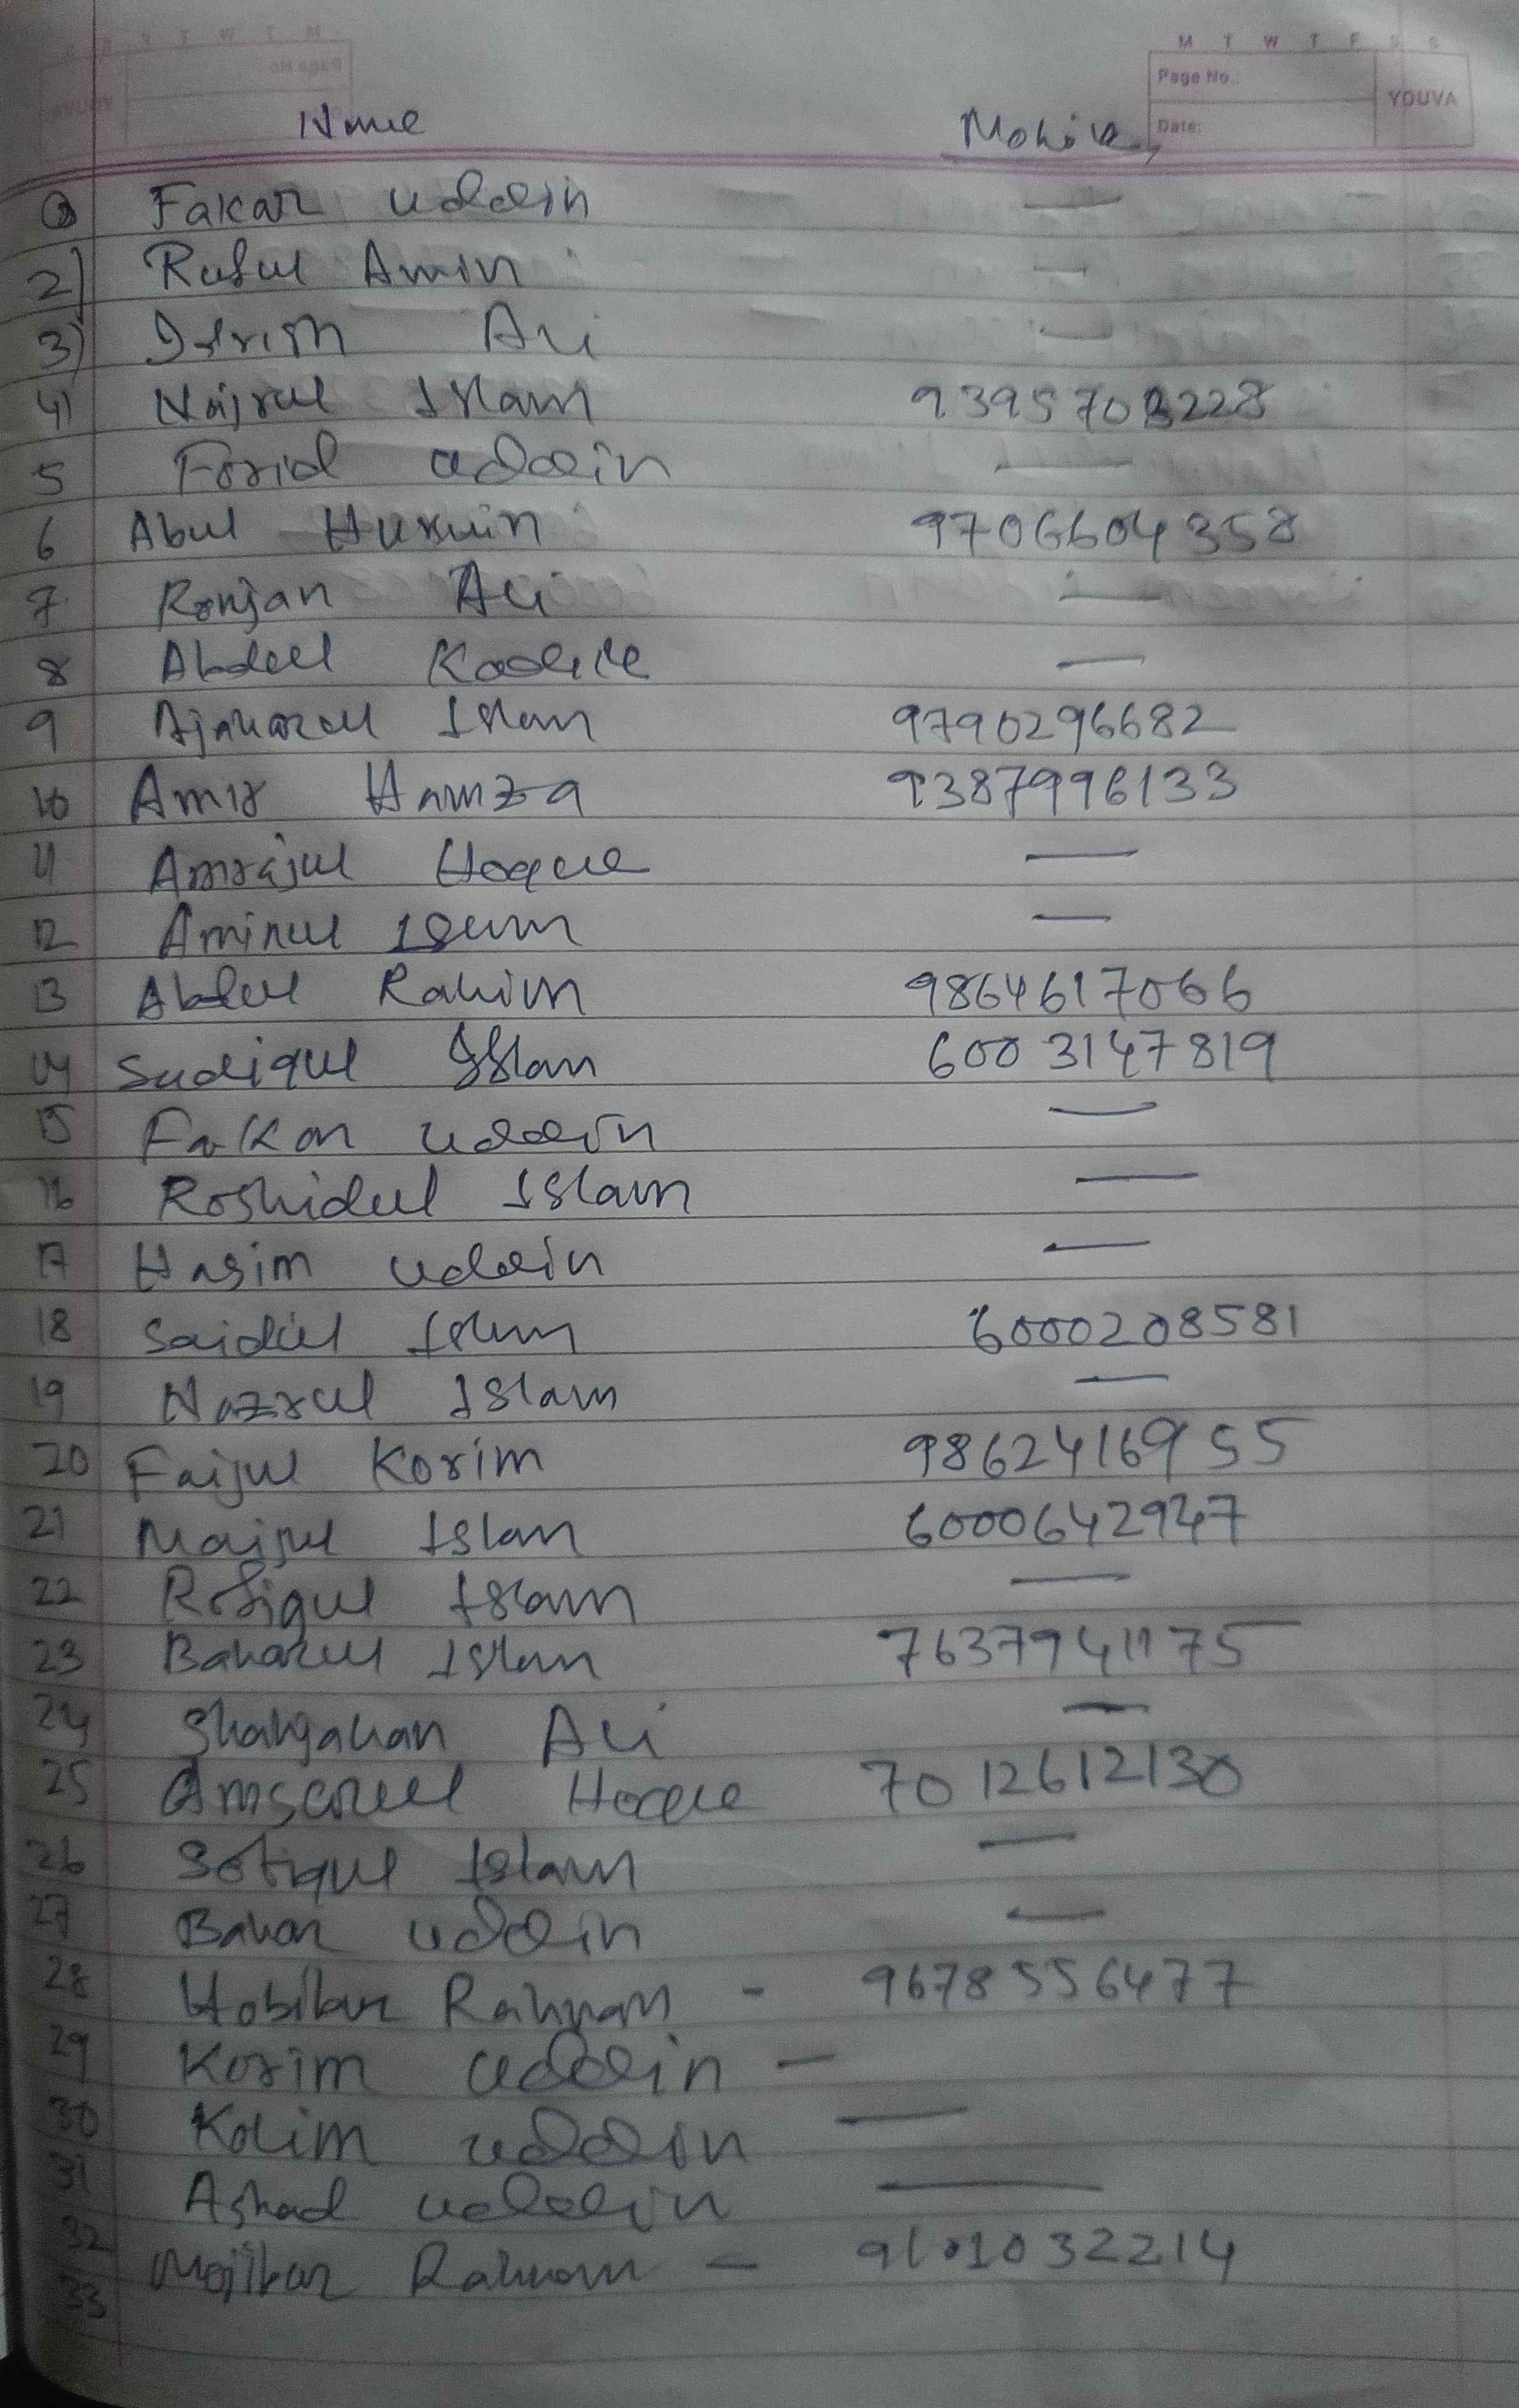 M T W T F S S
Page No.:
YOUVA
Date:
Name Mobile
1 Fakar uddin —
2) Ruful Amin —
3) Idrish Ali —
4) Noijrul Islam 9395703228
5 Forid uddin —
6 Abul Hussain 9706604358
7 Ronjan Ali —
8 Abdul —
9 Islam 9790296682
10 Amir Hamza 9387996133
11 Amrajul Hoque —
12 Aminul Islam —
13 Abdul Rahim 9864617066
14 Sadiqul Islam 6003147819
15 Fakar uddin —
16 Roshidul Islam —
17 Hasim uddin —
18 Saidul Islam 6000208581
19 Nazrul Islam —
20 Faijul Korim 9862416955
21 Maijul Islam 6000642947
22 Rofiqul Islam —
23 Baharul Islam 7637941175
24 Shahjahan Ali —
25 Hoque 7012612130
26 Sofiqul Islam —
27 Bahar uddin —
28 Hobibur Rahman - 9678556477
29 Korim uddin —
30 Kolim uddin —
31 Ashad uddin —
32 Mojibur Rahman —
33